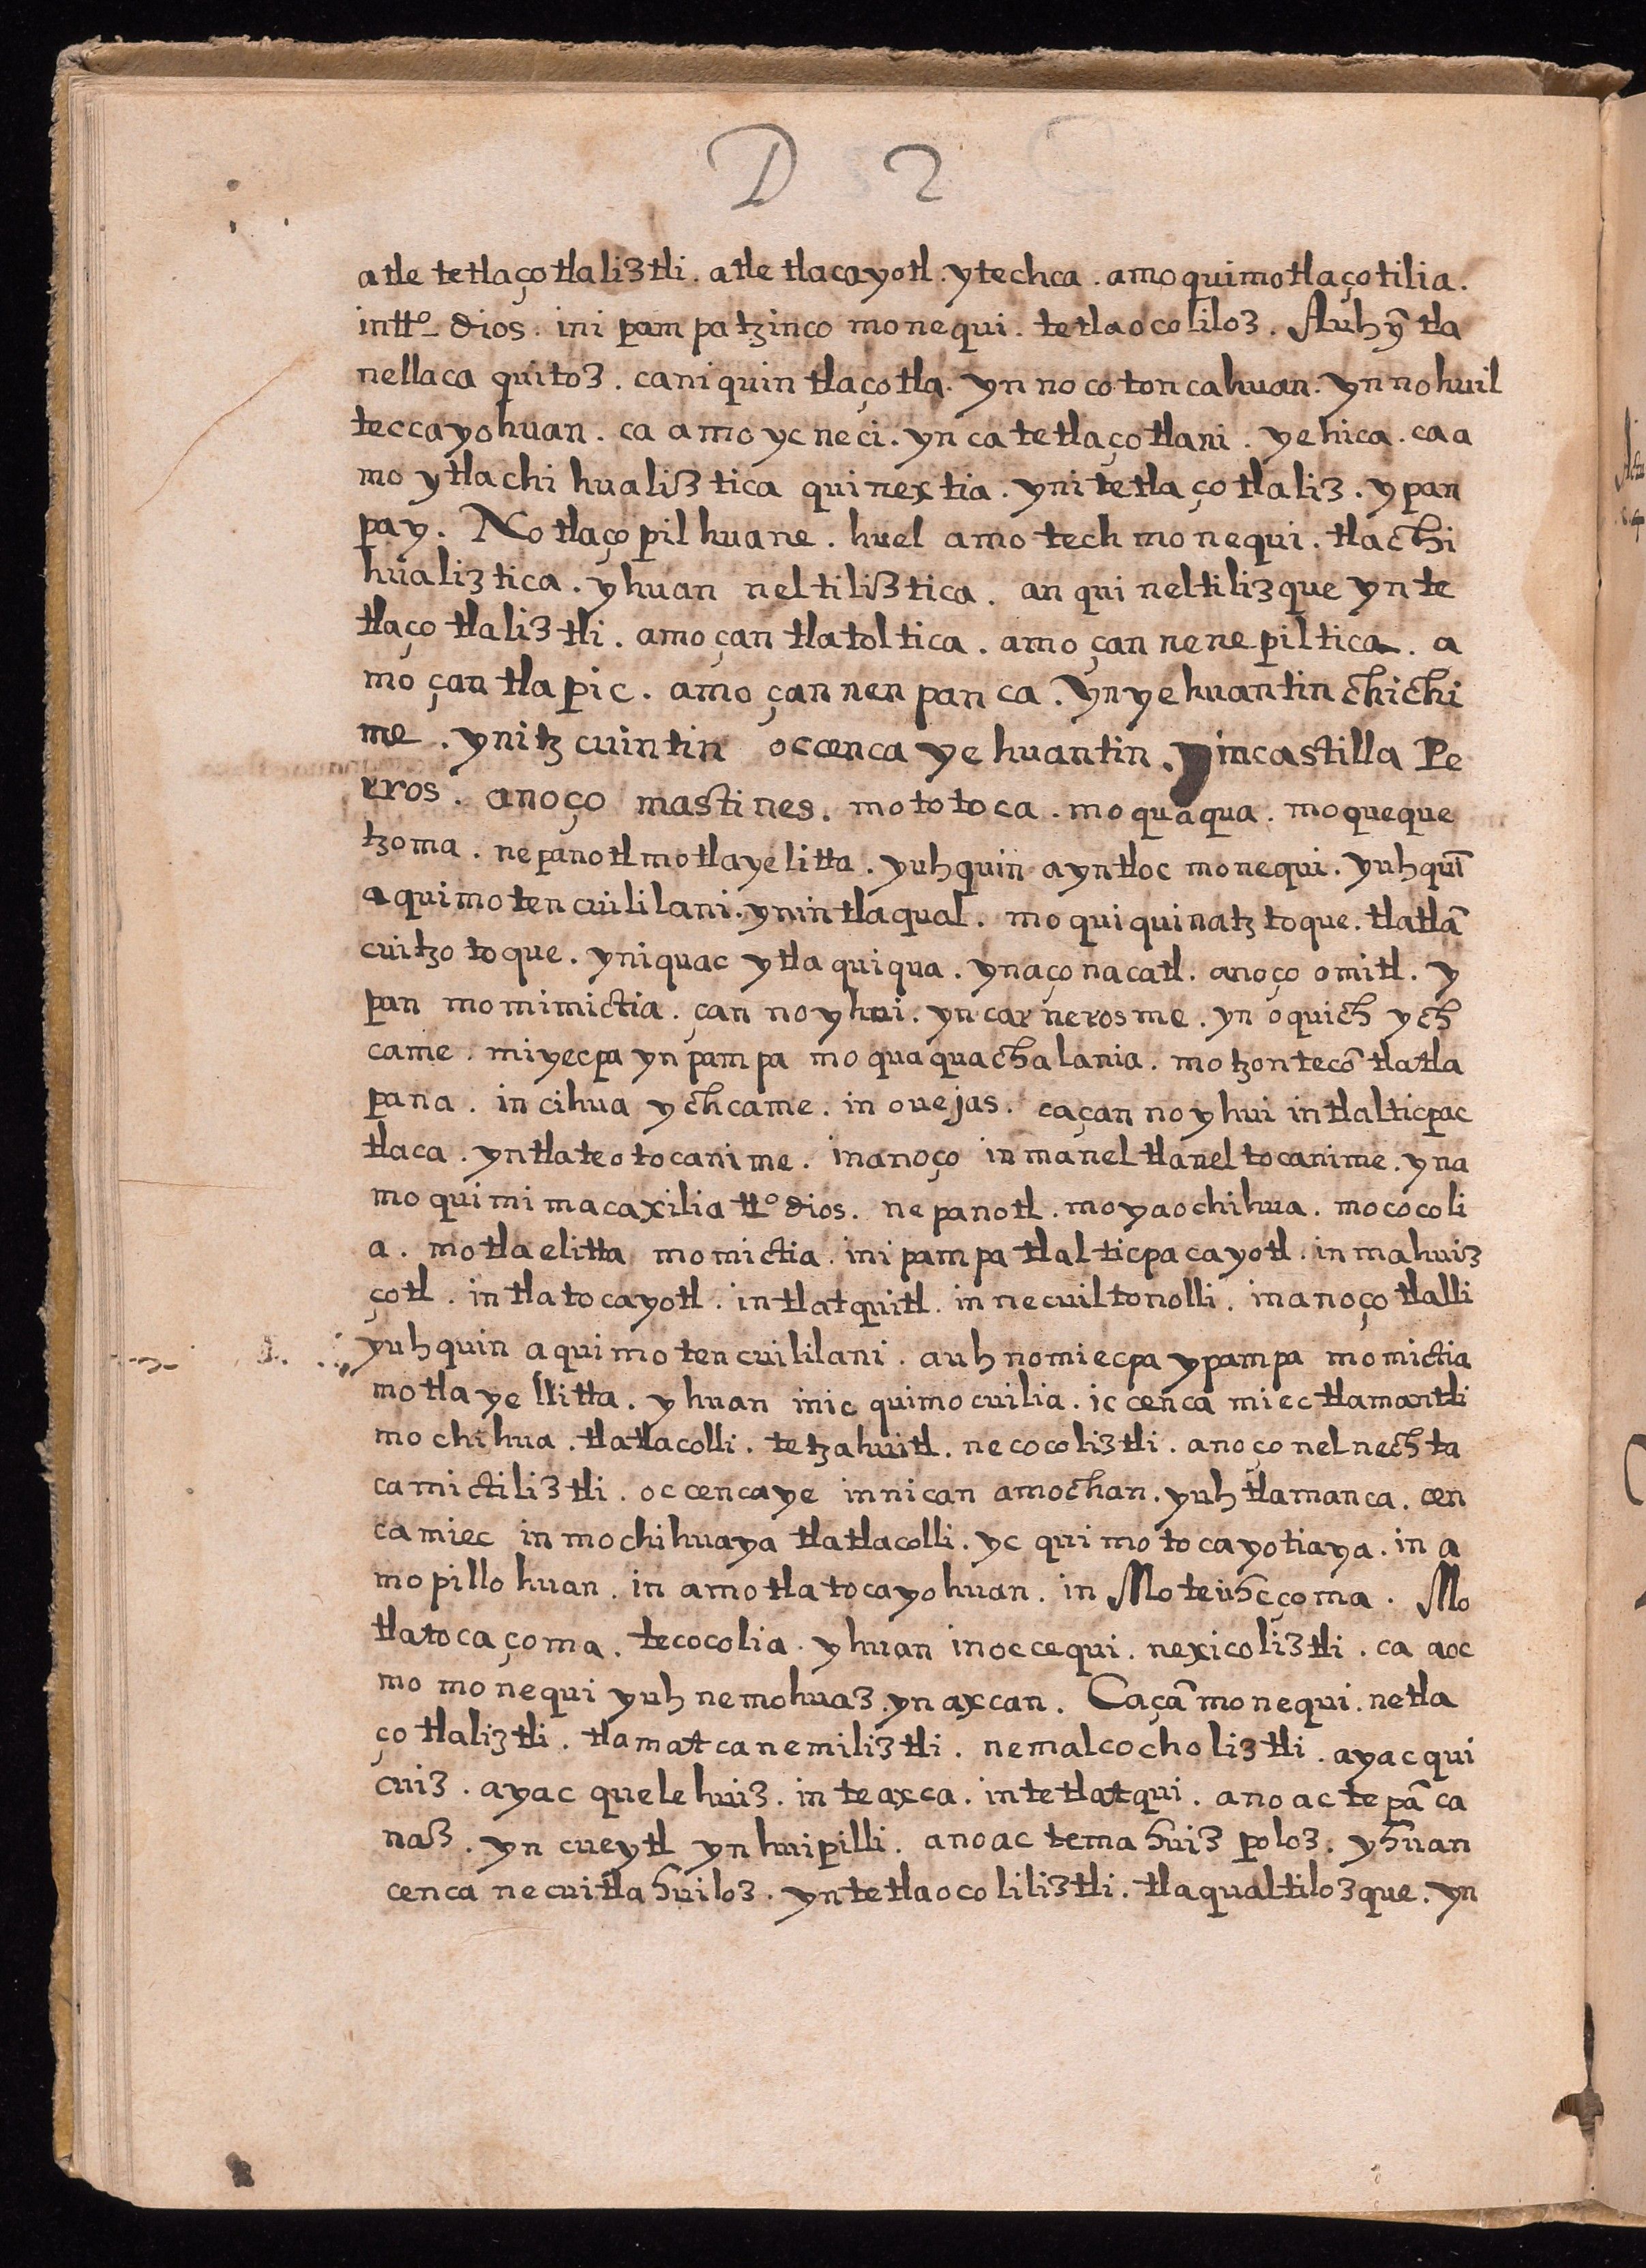 D 2
atle tetlaçotlaliztli . atle tlacayotl . ytechca . amo quimotlaçotilia .
in tt.º dios . ini pampatzinco monequi . tetlaocoliloz . Auh ȳ tla
nellaca quitoz . ca niquin tlaçotla . yn nocotoncahuan . yn nohuil
teccayohuan . ca amo yc neci . yn ca tetlaçotlani . yehica . ca a
mo ytlachihualiztica quinextia . yni tetlaçotlaliz . ypan
pay . Notlaçopilhuane . huel amotech monequi . tlachi
hualiztica . yhuan neltiliztica . anquineltilizque yn te
tlaçotlaliztli . amo çan tlatoltica . amo çan nenepiltica . a
mo çan tlapic . amo çan nenpanca . Yn yehuantin chichi
me . yn itzcuintin occenca yehuantin . yin castilla Pe
rros . anoço mastines . mototoca . moquaqua . moqueque
tzoma . nepanotl motlayelitta . yuhquin ayntloc monequi . yuhquī
aquimotencuililani . ynin tlaqual . moquiquinatztoque . tlatlā
cuitzotoque . yniquac ytla quiqua . yn aço nacatl . anoço omitl . y
pan momimictia . çan no yhui . yn carnerosme . yn oquich ych
came . miyecpa yn pampa moquaquachalania . motzontecō tlatla
pana . in cihua ychcame . in ouejas . ca çan no yhui in tlalticpac
tlaca . yn tlateotocanime . in anoço in manel tlaneltocanime . yn a
mo quimimacaxilia tt.º dios . nepanotl . moyaochihua . mococoli
a . motlaelitta momictia . ini pampa tlalticpacayotl . in mahuiz
çotl . in tlatocayotl . in tlatquitl . in necuiltonolli . in anoço tlalli
yuhquin aquimotencuililani . auh no miecpa ypampa momictia
motlayellitta . yhuan inic quimocuilia . ic cenca miectlamantli
mochihua . tlatlacolli . tetzahuitl . necocoliztli . anoço nel nechta
camictiliztli . occencaye in nican amochan . yuh tlamanca . cen
ca miec in mochihuaya tlatlacolli . yc quimotocayotiaya . in a
mopillohuan . in amotlatocayohuan . in Moteuhcçoma . Mo
tlatocaçoma . tecocolia . yhuan in occequi . nexicoliztli . ca aoc
mo monequi yuh nemohuaz . yn axcan . Ca çā monequi . netla
çotlaliztli . tlamatcanemiliztli . nemalcocholiztli . ayac qui
cuiz . ayac quelehuiz . in teaxca . in tetlatqui . ano ac tepā ca
naz . yn cueytl yn huipilli . ano ac temahuiz poloz . yhuan
cenca necuitlahuiloz . yn tetlaocoliliztli . tlaqualtilozque . yn